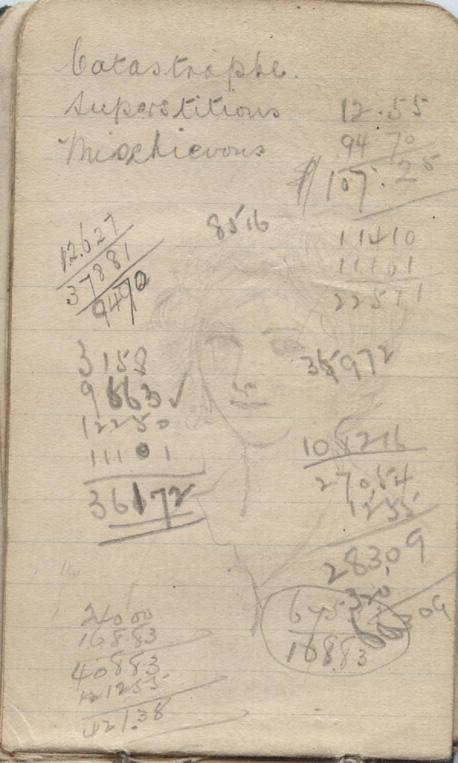 Catastrophe.
Superstitions
Mischievous
12.55
94 70
107.25
8516
12.627
37881
9470
11410
11101
22511
3158
9663 ✓
12250
11101
36172
35972
108216
27054
1255
28309
24000
16883
40883